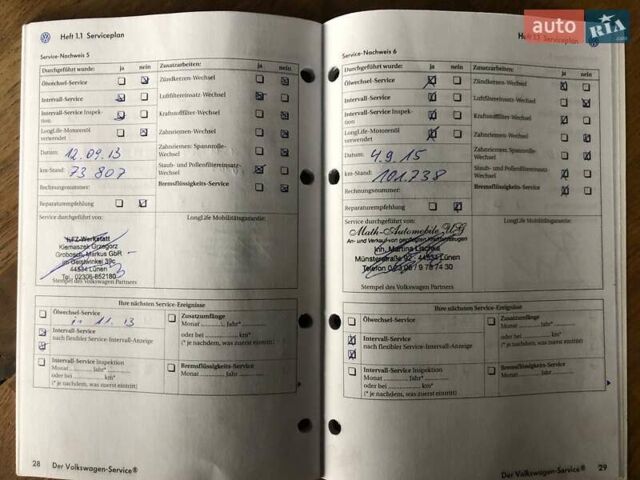 auto RIA.com
Heft 1.1 Serviceplan
Service-Nachweis 5
Durchgeführt wurde: ja nein
Zusatzarbeiten: ja nein
Ölwechsel-Service
Zündkerzen-Wechsel
Intervall-Service
Luftfiltereinsatz-Wechsel
Intervall-Service Inspek-
tion
Kraftstofffilter-Wechsel
LongLife-Motorenöl
verwendet
Zahnriemen-Wechsel
Datum: 12.09.13
Zahnriemen: Spannrolle-
Wechsel
km-Stand: 73 807
Staub- und Pollenfiltereinsatz-
Wechsel
Rechnungsnummer:
Bremsflüssigkeits-Service
Reparaturempfehlung
Service durchgeführt von:
LongLife Mobilitätsgarantie:
KFZ-Werkstatt
Klemaszek Grzegorz
Grobosch Markus GbR
Im Geistwinkel 39c
44534 Lünen
Tel.: 02306-852180
Stempel des Volkswagen Partners
Ihre nächsten Service-Ereignisse
Ölwechsel-Service
11.13
Intervall-Service
nach flexibler Service-Intervall-Anzeige
Zusatzumfänge
Monat Jahr*
oder bei km*
(* je nachdem, was zuerst eintritt)
Intervall-Service Inspektion
Monat Jahr*
oder bei km*
(* je nachdem, was zuerst eintritt)
Bremsflüssigkeits-Service
Monat Jahr
28 Der Volkswagen-Service®
Heft 1.1 Serviceplan
Service-Nachweis 6
Durchgeführt wurde: ja nein
Zusatzarbeiten: ja nein
Ölwechsel-Service
Zündkerzen-Wechsel
Intervall-Service
Luftfiltereinsatz-Wechsel
Intervall-Service Inspek-
tion
Kraftstofffilter-Wechsel
LongLife-Motorenöl
verwendet
Zahnriemen-Wechsel
Datum: 4.9.15
Zahnriemen: Spannrolle-
Wechsel
km-Stand: 101.738
Staub- und Pollenfiltereinsatz-
Wechsel
Rechnungsnummer:
Bremsflüssigkeits-Service
Reparaturempfehlung
Service durchgeführt von:
LongLife Mobilitätsgarantie:
Math-Automobile UG
An- und Verkauf von gepflegten
Inh. Martina
Münsterstraße 92 · 44534 Lünen
Telefon 0 23 06 / 9 78 74 30
Stempel des Volkswagen Partners
Ihre nächsten Service-Ereignisse
Ölwechsel-Service
Intervall-Service
nach flexibler Service-Intervall-Anzeige
Zusatzumfänge
Monat Jahr*
oder bei km*
(* je nachdem, was zuerst eintritt)
Intervall-Service Inspektion
Monat Jahr*
oder bei km*
(* je nachdem, was zuerst eintritt)
Bremsflüssigkeits-Service
Monat Jahr
Der Volkswagen-Service® 29